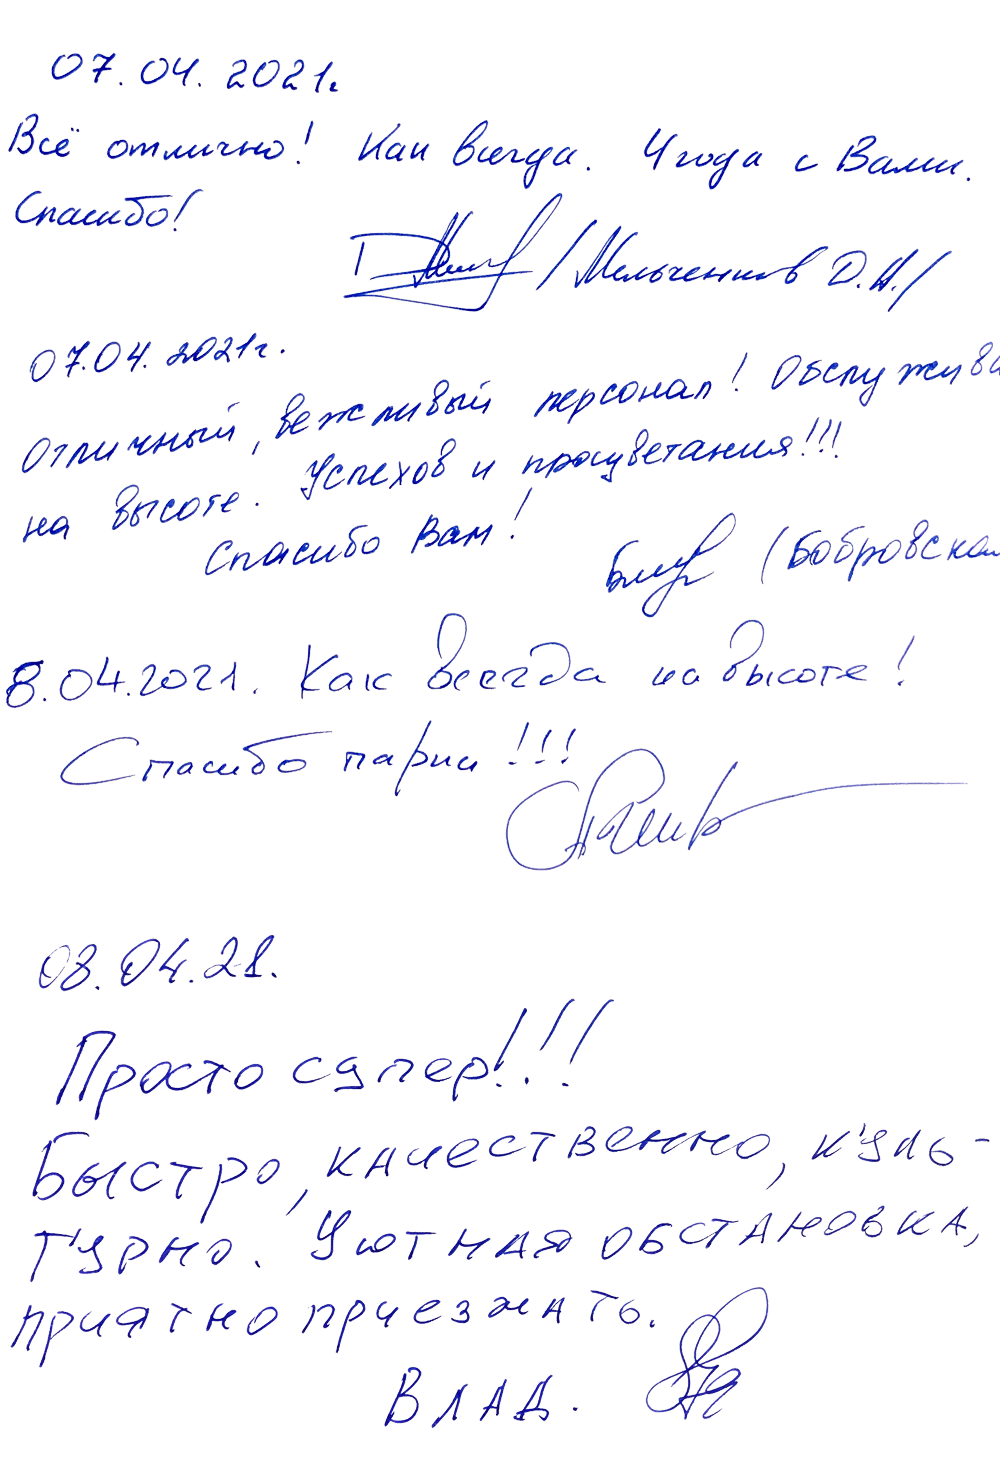 07.04.2021г.
Всё отлично! Как всегда. 4 года с Вами.
Спасибо!
/Мельченков Д.А./
07.04.2021г.
Отличный, вежливый персонал! Обслужива
на высоте. Успехов и процветания!!!
Спасибо Вам!
(Бобровская
8.04.2021. Как всегда на высоте!
Спасибо парни!!!
08.04.21.
Просто супер!!!
Быстро, качественно, куль-
турно. Уютная обстановка,
приятно приезжать.
Влад.